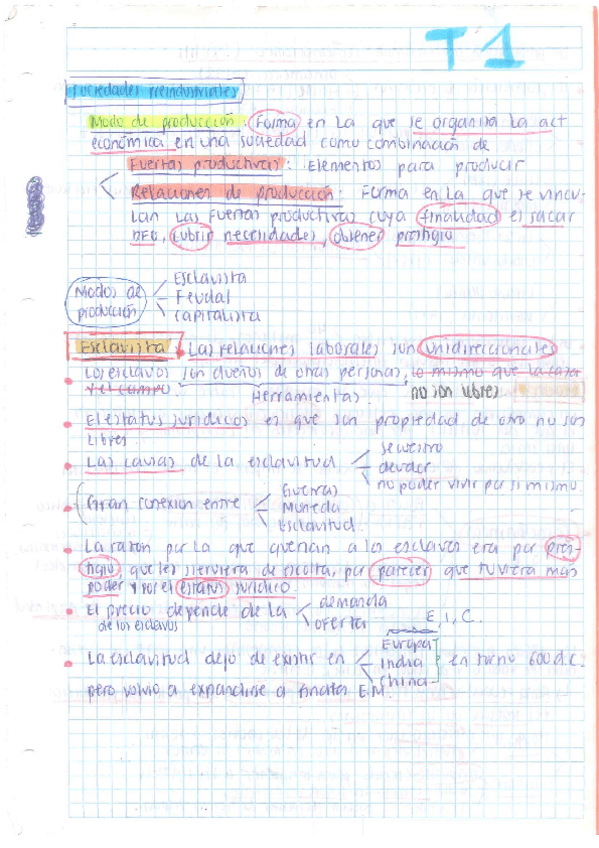 T1
Sociedades preindustriales
Modo de producción: Forma en la que se organiza la act
económica en una sociedad como combinación de
Fuerzas productivas: Elementos para producir
Relaciones de producción: Forma en la que se vincu-
lan las fuerzas productivas cuya finalidad es sacar
BFO, cubrir necesidades, obtener prestigio
Modos de producción
Esclavista
Feudal
Capitalista
Esclavista
Las relaciones laborales son unidireccionales
Los esclavos son dueños de otras personas, lo mismo que la casa
y el campo.
Herramientas.
no son libres
El estatus jurídico es que son propiedad de otro no son
libres.
Las causas de la esclavitud
secuestro
deudor
no poder vivir por sí mismo.
Gran conexion entre
Guerras
Moneda
Esclavitud.
La razón por la que querían a los esclavos era por pres-
tigio, que les sierviera de escolta, por parecer que tuviera más
poder y por el estatus jurídico.
El precio depende de la
de los esclavos
demanda
oferta
E, I, C.
La esclavitud dejo de existir en
Europa
India
China
en torno 600 d.C.
pero volvio a expandirse a finales E.M.